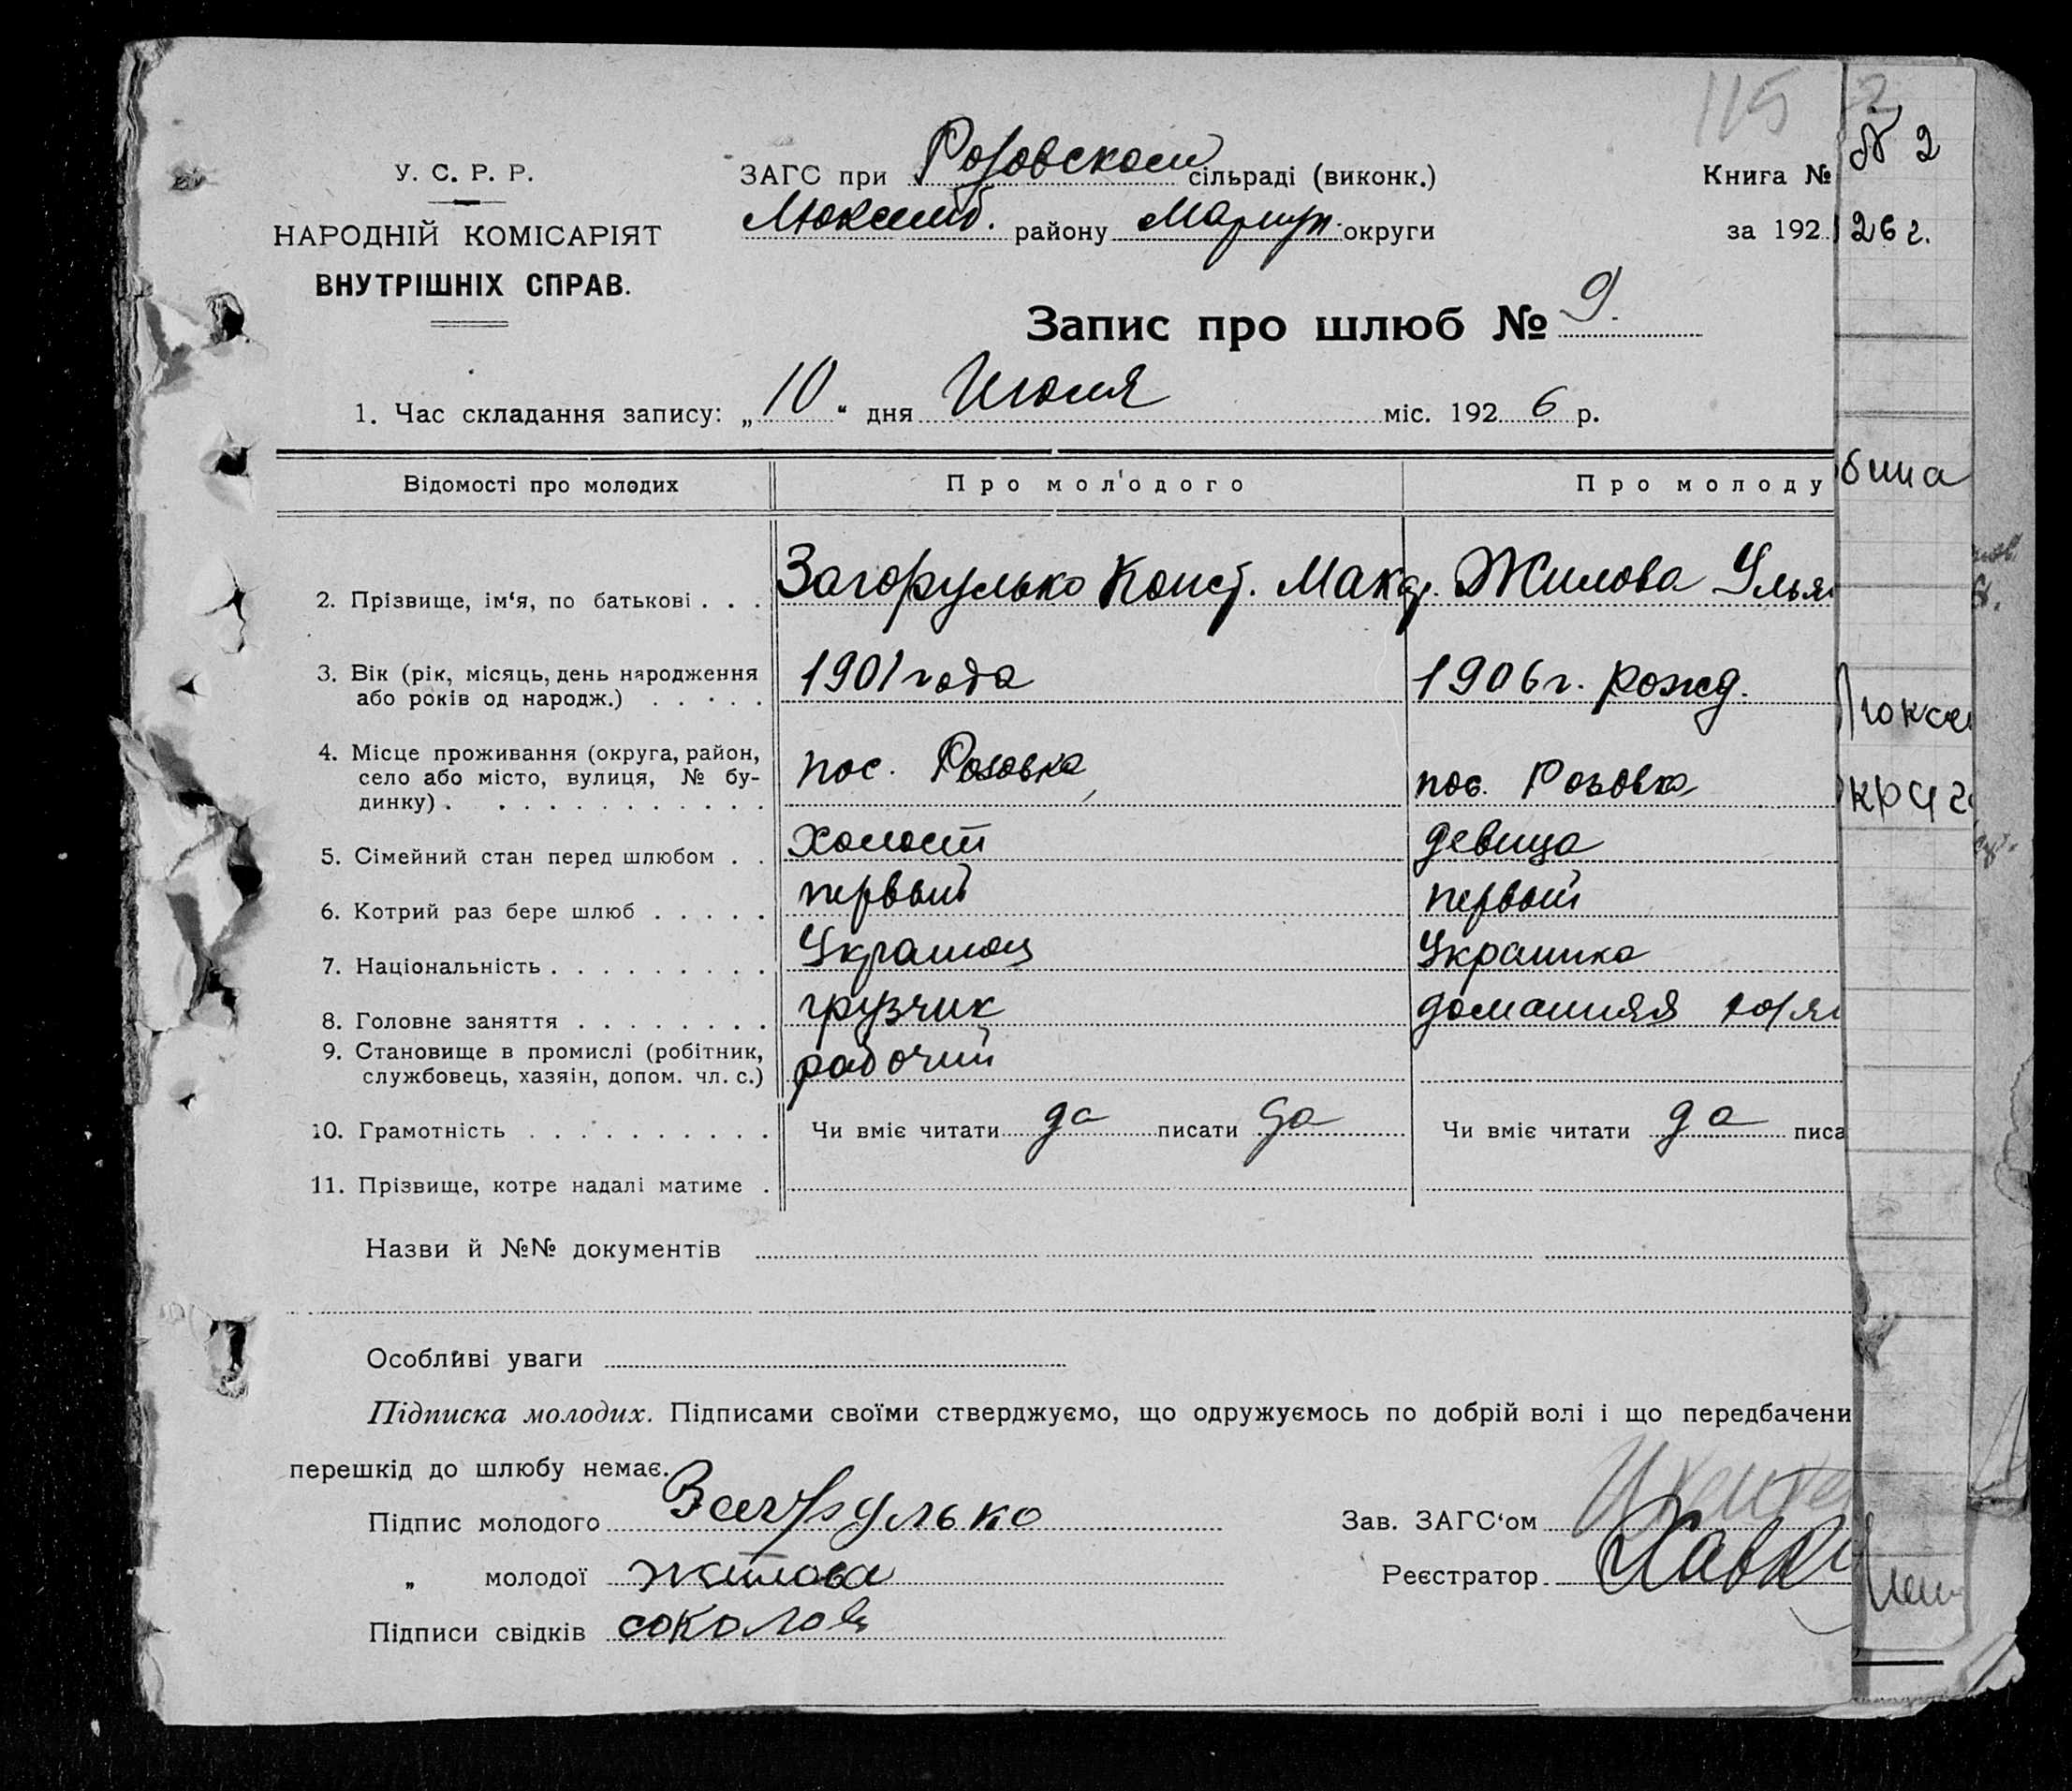 115 2
У. С. Р. Р.
НАРОДНІЙ КОМІСАРІЯТ
ВНУТРІШНІХ СПРАВ.
ЗАГС при Розовском сільраді (виконк.)
Люксемб. району Мариуп. округи
Книга № № 2
за 192 26 г.
Запис про шлюб № 9.
1. Час складання запису: „ 10 “ дня Июля міс. 192 6 р.
Відомості про молодих Про молодого Про молоду
бина
2. Прізвище, ім‘я, по батькові . . . Загорулько Конст. Макс. Жилова Улья
3. Вік (рік, місяць, день народження 1901 года 1906 г. рожд.
або років од народж.) . . . . .
Люксе
4. Місце проживання (округа, район, пос. Розовка пос. Розовка
село або місто, вулиця, № бу-
динку) . . . . . . . . . . . .
округ
5. Сімейний стан перед шлюбом . . холост девица
6. Котрий раз бере шлюб . . . . . первый первый
7. Національність . . . . . . . . . Украинец Украинка
8. Головне заняття . . . . . . . . грузчик домашняя хозяй
9. Становище в промислі (робітник, рабочий
службовець, хазяін, допом. чл. с.)
10. Грамотність . . . . . . . . . . Чи вміє читати да писати да Чи вміє читати да писа
11. Прізвище, котре надалі матиме .
Назви й №№ документів
Особливі уваги
Підписка молодих. Підписами своїми стверджуємо, що одружуємось по добрій волі і що передбачени
перешкід до шлюбу немає.
Підпис молодого Загорулько Зав. ЗАГС‘ом
„ молодої Жилова Реєстратор
Підписи свідків соколов